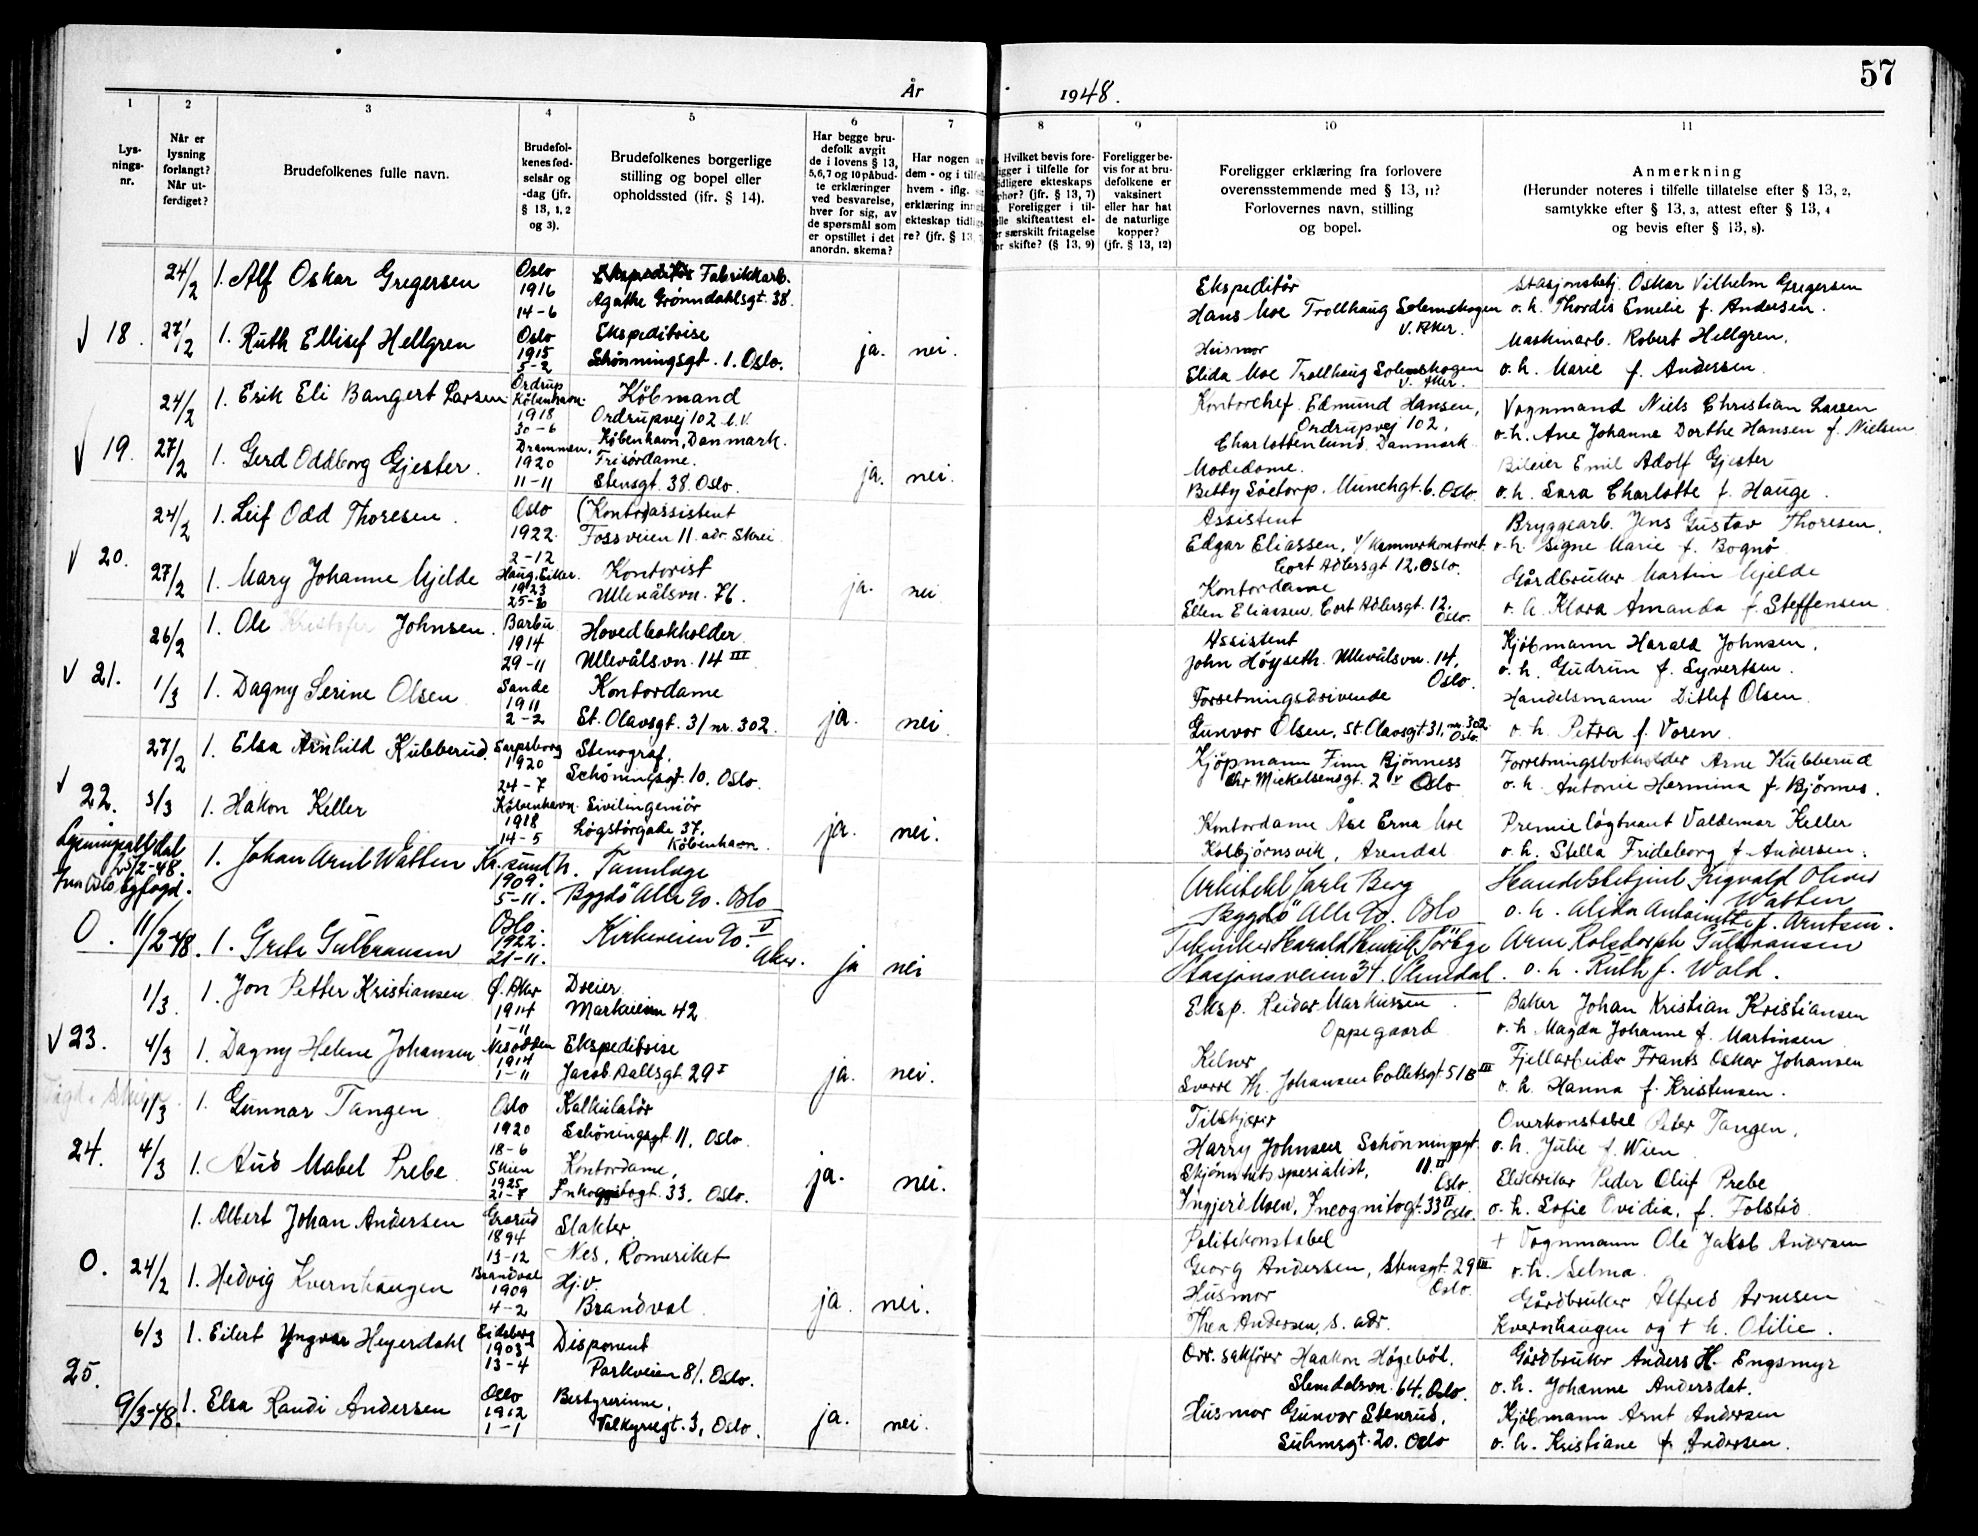 57
År 1948.
1 2 3 4 5 6 7 8 9 10 11
Lysningsnr.
Når er lysning forlangt? Når utferdiget?
Brudefolkenes fulle navn.
Brudefolkenes fødselsår og -dag (jfr. § 13, 1, 2 og 3).
Brudefolkenes borgerlige stilling og bopel eller opholdssted (jfr. § 14).
Har begge brudefolk avgit de i lovens § 13, 5,6,7 og 10 påbudte erklæringer ved besvarelse, hver for sig, av de spørsmål som er opstillet i det anordn. skema?
Har nogen av dem - og i hvem - iflg. erklæring ekteskap re? (jfr. § 13,
Hvilket bevis for i tilfelle for ekteskaps (jfr. § 13, 7) Foreligger i skifteattest særskilt fritagelse for skifte? (§ 13, 9)
Foreligger bevis for at brudefolkene er vaksinert eller har hat de naturlige kopper? (jfr. § 13, 12)
Foreligger erklæring fra forlovere overensstemmende med § 13, 11? Forlovernes navn, stilling og bopel.
Anmerkning
(Herunder noteres i tilfelle tillatelse efter § 13, 2, samtykke efter § 13, 3, attest efter § 13, 4 og bevis efter § 13, 8).
24/2 1. Alf Oskar Gregersen Oslo 1916 14-6 Fabrikkarb. Agathe Grønndahlsgt. 38. Ekspeditør Hans Moe Trollhaug Solemskogen V. Aker. Stasjonsbetj. Oskar Vilhelm Gregersen o. h. Thordis Emelie f. Andersen.
18. 27/2 1. Ruth Ellisef Hellgren Oslo 1915 5-2 Ekspeditrise Schønningsgt. 1. Oslo. ja. nei. Husmor Elida Moe Trollhaug Solemskogen V. Aker. Maskinarb. Robert Hellgren. o. h. Marie f. Andersen.
24/2 1. Erik Eli Bangert Larsen Ordrup København 1918 30-6 Köbmand Ordrupvej 102 København, Danmark. Kontorchef Edmund Hansen, Ordrupvej 102, Charlottenlund. Danmark. Vognmand Niels Christian Larsen o. h. Ane Johanne Dorthe Hansen f. Nielsen
19. 27/2 1. Gerd Oddborg Gjester. Drammen. 1920 11-11 Frisørdame. Stensgt. 38. Oslo. ja. nei. Modedame. Betty Söetorp. Munchgt. 6. Oslo. Bileier Emil Adolf Gjester o. h. Sara Charlotte f. Hauge.
24/2 1. Leif Odd Thoresen. Oslo 1922. 2-12 Kontorassistent Fossveien 11. adr. Skrei Assistent Edgar Eliassen, v/ Kemnerkontoret Cort Adlersgt 12, Oslo. Bryggearb. Jens Gustav Thoresen. o. h. Signe Marie f. Bognø
20. 27/2 1. Mary Johanne Mjelde Haug, Eiker. 1923 Kontorist Ullevålsvn. 76. ja. nei Kontordame Ellen Eliassen. Cort Adlersgt. 12. Oslo. Gårdbruker Martin Mjelde o. h. Klara Amanda f. Steffensen
26/2 1. Ole Kristofer Johnsen. Barbu 1914 29-11 Hovedbokholder Ullevålsvn. 14 III Assistent John Høyseth. Ullevålsvn. 14, Oslo. Kjöbmann Harald Johnsen. o. h. Gudrun f. Syvertsen.
21. 1/3 1. Dagny Serine Olsen Sande 1911 2-2 Kontordame St. Olavsgt. 31 nr. 302. ja. nei. Forretningsdrivende Gunvor Olsen, St. Olavsgt. 31, nr. 302 Oslo. Handelsmann Ditlef Olsen o. h. Petra f. Voren.
27/2 1. Elsa Arnhild Kubberud. Sarpsborg 1920 24-7 Stenograf. Schöningsgt. 10. Oslo. Kjöpmann Finn Bjönness Chr Mickelsensgt. 2 v Oslo Forretningsbokholder Arne Kubberud o. h. Antonie Hermina f. Bjørnes.
22. 3/3 1. Håkon Keller København. 1918 14-5 Sivilingeniør Løgstörgade 37. København. ja. nei. Kontordame Åse Erna Moe Kolbjørnsvik, Arendal Premierløytnant Valdemar Keller o. h. Stella Frideborg f. Andersen.
1. Johan Arnt Watten Kr. sund n. 1909. 5-11. Tannlæge Bygdö Alle 90. Oslo Arkitekt Jarle Berg Bygdö Alle 90. Oslo Handelsbetjent Sigvald Oliver Watten o. h. Alida Antoinette f. Arntsen.
O. 11/2-48. 1. Grete Gulbransen Oslo. 1922. 21-11. Kirkeveien 90. V Aker. ja nei Tekniker Harald Henrik Stasjonsveien 34. Slemdal. Arne Rolsdorph Gulbransen o. h. Ruth f. Wold.
1/3. 1. Jon Petter Kristiansen Ø. Aker 1914 1-11 Dreier. Markveien 42 Eksp. Reidar Markussen Oppegaard Baker Johan Kristian Kristiansen o. h. Magda Johanne f. Martinsen
23. 4/3 1. Dagny Helene Johansen Nesodden 1914 1-11 Ekspeditrise Jacob Aallsgt. 29 I ja. nei. Kelner Sverre Th. Johansen Colletsgt 51B III Fjellarbeider Frants Oskar Johansen o. h. Hanna f. Kristensen.
1/3 1. Gunnar Tangen Oslo 1920 18-6 Kalkulatör Schöningsgt. 11, Oslo. Tilskjærer Harry Johnsen Schönningsgt. 11. II Oslo Overkonstabel Peter Tangen. o. h. Julie f. Wien
24. 4/3 1. Aud Mabel Prebe Skien 1925 21-7 Kontordame, Inkognitogt. 33. Oslo. ja. nei. Skjønnhetsspesialist, Ingjerd Moen, Incognitogt. 33 II Oslo. Elektriker Peder Oluf Prebe o. h. Sofie Ovidia, f. Folstad.
1. Albert Johan Andersen Grorud 1894 13-12 Slakter. Nes, Romeriket Politikonstabel Georg Andersen, Stensgt. 29 III Oslo. + Vognmann Ole Jakob Andersen o. h. Selma.
O. 24/2 1. Hedvig Kvernhaugen Brandval 1909 4-2 Hj.v. Brandval. ja. nei. Husmor Thea Andersen, s. adr. Gårdbruker Alfred Arnesen Kvernhaugen og + h. Otilie.
6/3 1. Eilert Yngvar Heyerdahl Eidsberg 1903 13-4 Disponent Parkveien 81. Oslo. Ovr. sakfører Haakon Högebøl. Slemdalsvn. 64. Oslo. Gårdbruker Anders H. Engsmyr o. h. Johanne Andersdat.
25. 9/3-48. 1. Elsa Randi Andersen Oslo 1912 1-1 Bestyrerinne, Valkyriegt. 3, Oslo. ja. nei. Husmor Gunvor Stenrud, Suhmsgt. 20. Oslo Kjöbmann Arnt Andersen o. h. Kristiane f. Andersen.